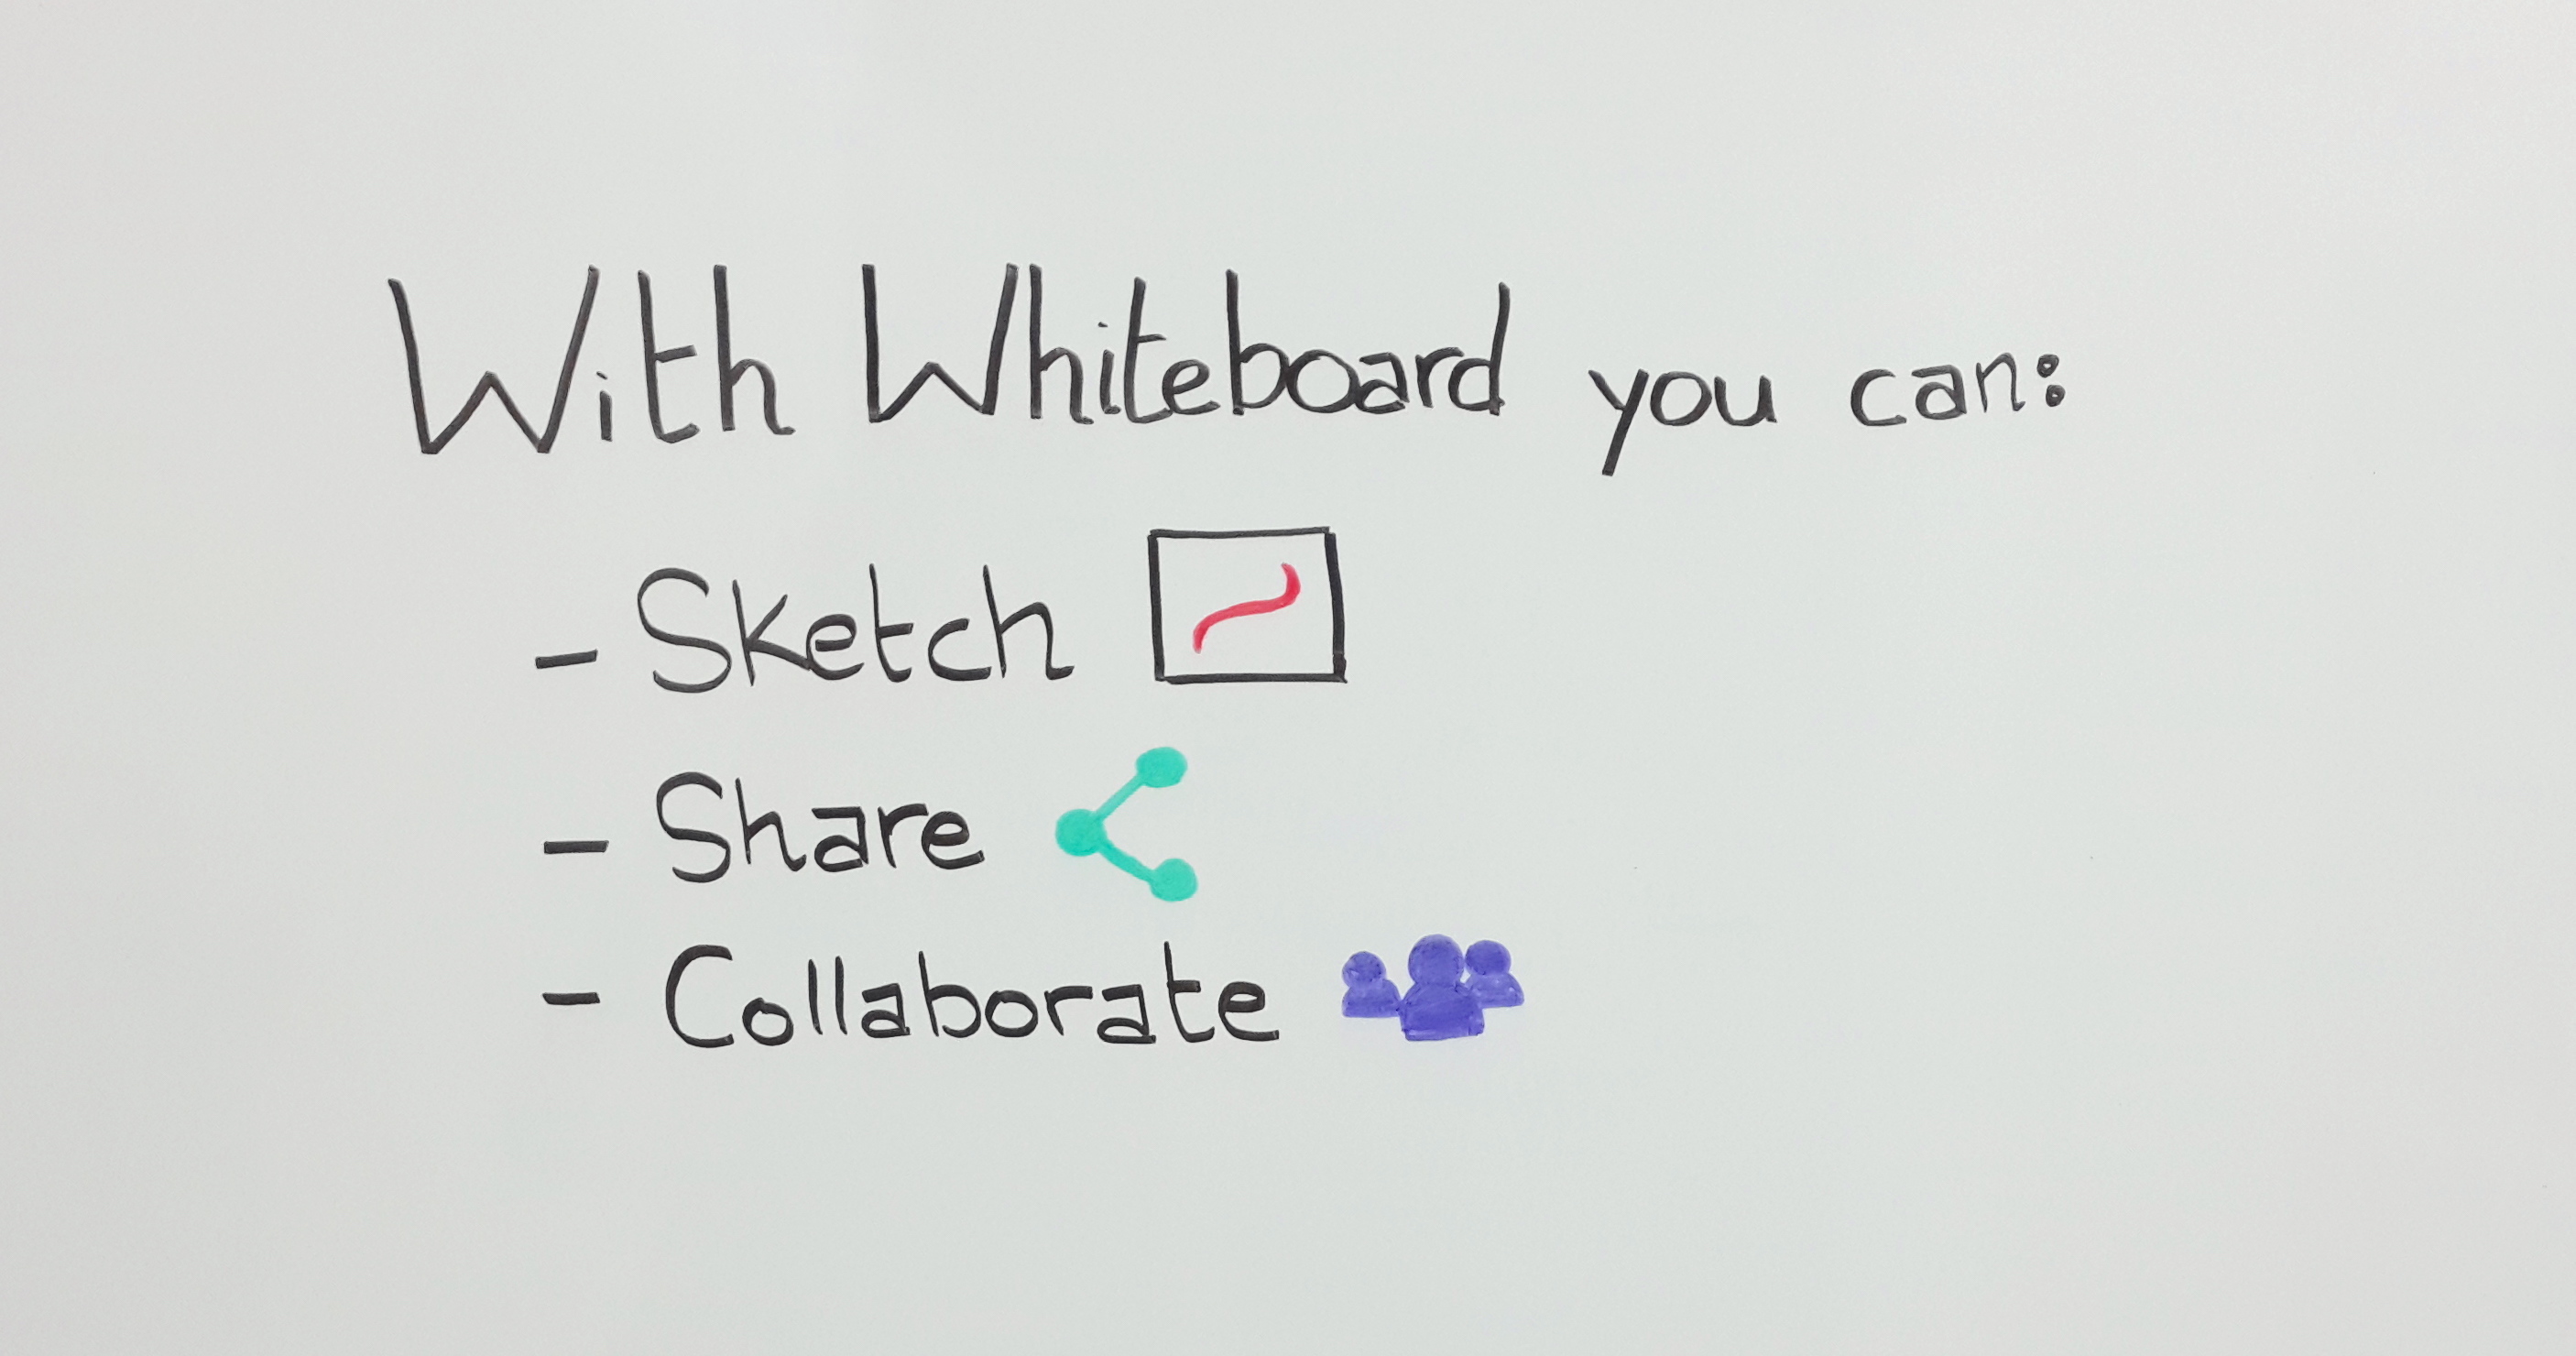 With Whiteboard you can:
- Sketch
- Share
- Collaborate